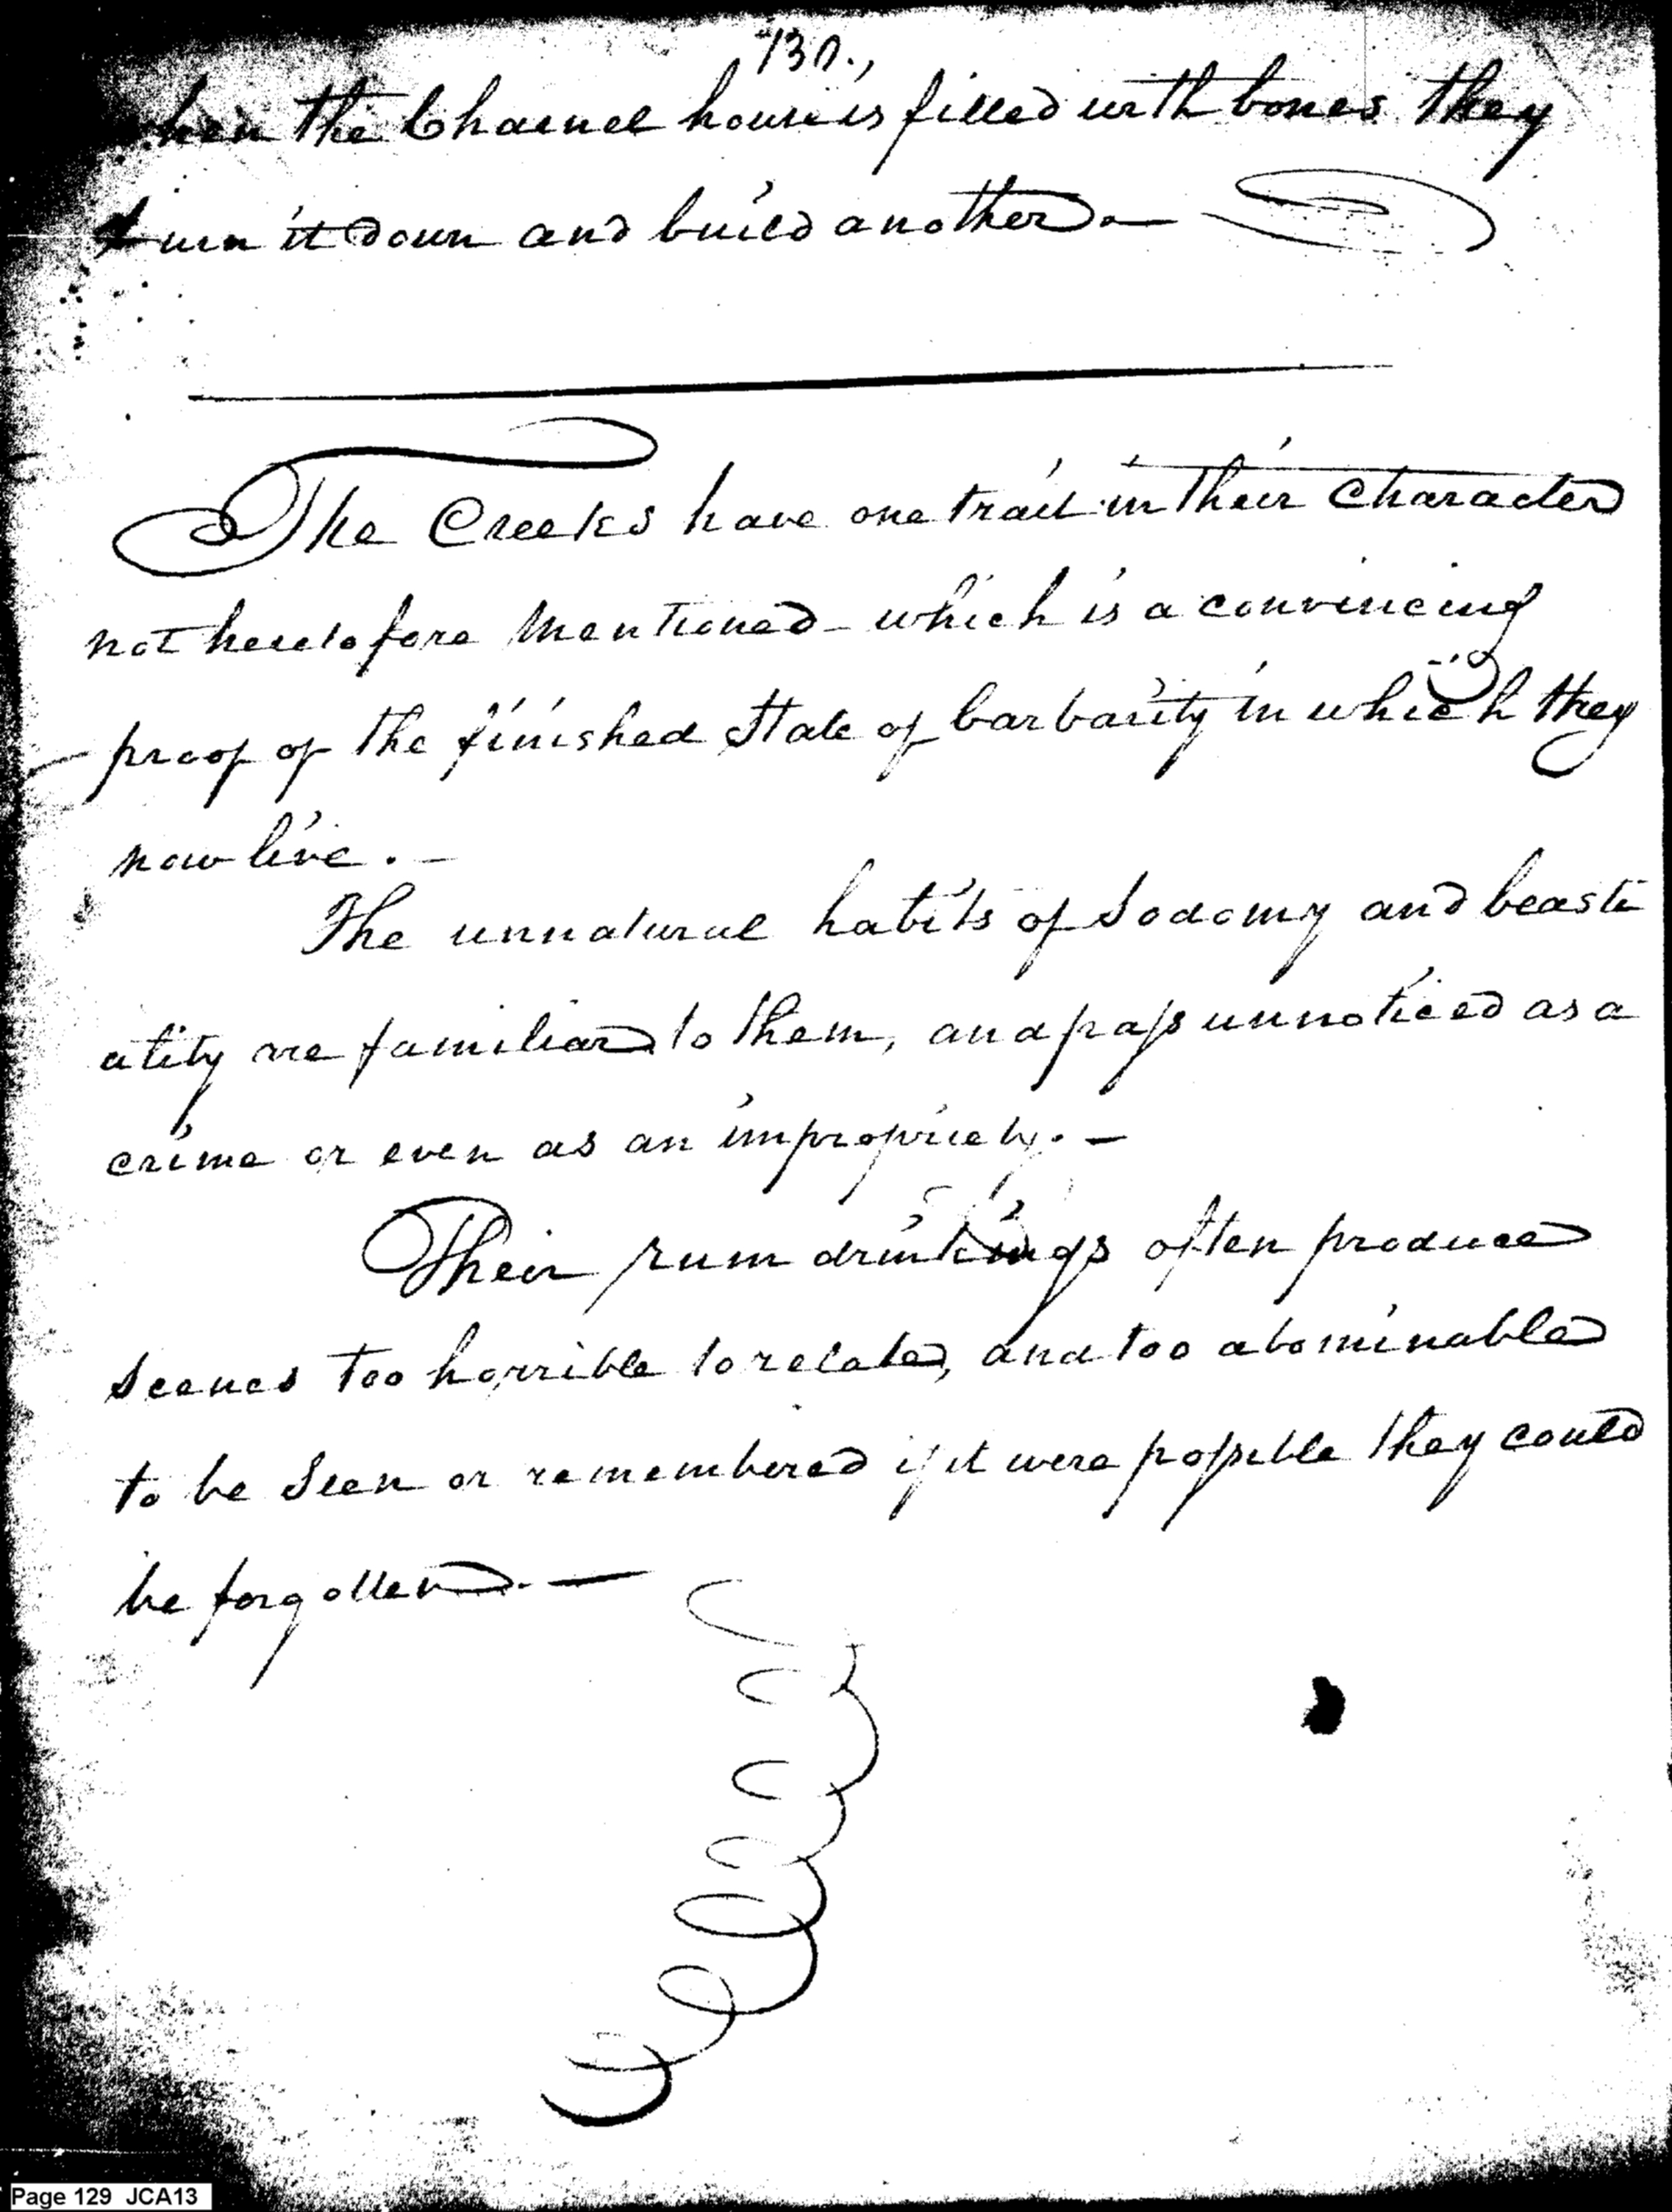 130.,
When the Charnel house is filled with bones they
turn it down and build another —
The Creeks have one trait in their Character
not heretofore mentioned – which is a convincing
proof of the finished State of barbarity in which they
now live. –
The unnatural habits of Sodomy and beasti
ality are familiar to them, and pass unnoticed as a
crime or even as an impropriety. –
Their rum drinkings often produce
Scenes too horrible to relate, and too abominable
to be Seen or remembered if it were possible they could
be forgotten. —
Page 129 JCA13